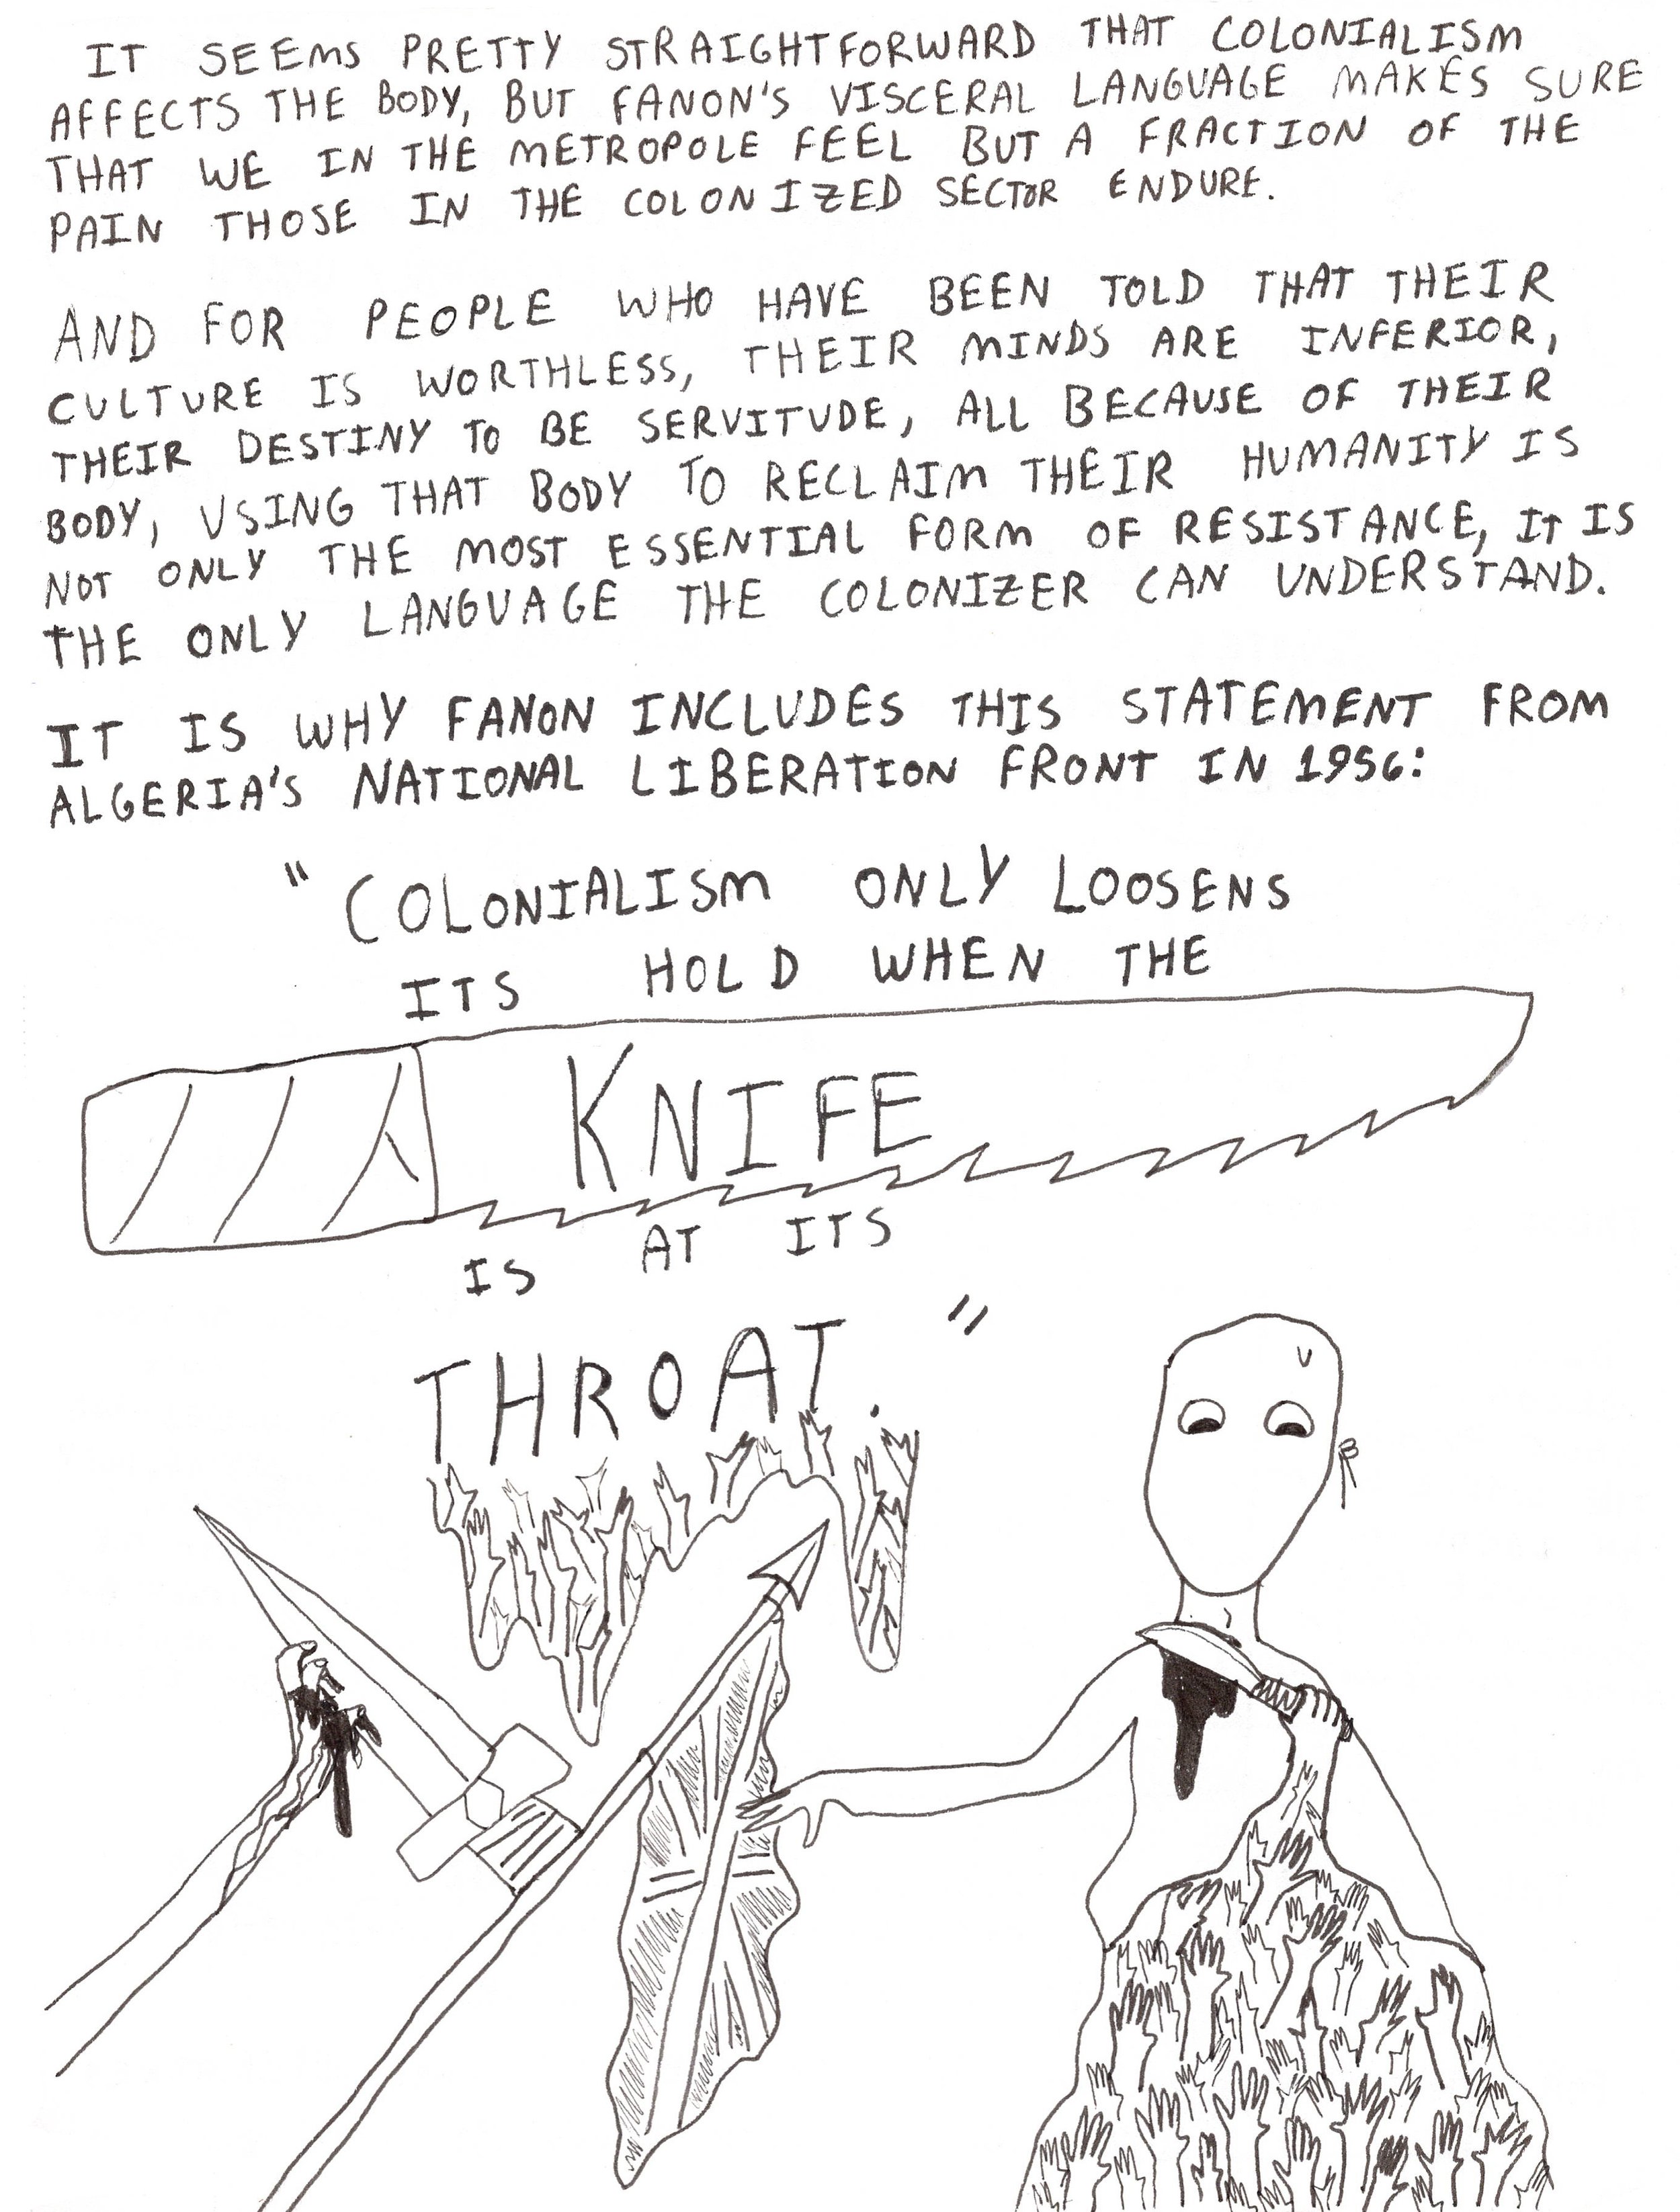 IT SEEMS PRETTY STRAIGHTFORWARD THAT COLONIALISM
AFFECTS THE BODY, BUT FANON'S VISCERAL LANGUAGE MAKES SURE
THAT WE IN THE METROPOLE FEEL BUT A FRACTION OF THE
PAIN THOSE IN THE COLONIZED SECTOR ENDURE.
AND FOR PEOPLE WHO HAVE BEEN TOLD THAT THEIR
CULTURE IS WORTHLESS, THEIR MINDS ARE INFERIOR,
THEIR DESTINY TO BE SERVITUDE, ALL BECAUSE OF THEIR
BODY, USING THAT BODY TO RECLAIM THEIR HUMANITY IS
NOT ONLY THE MOST ESSENTIAL FORM OF RESISTANCE, IT IS
THE ONLY LANGUAGE THE COLONIZER CAN UNDERSTAND.
IT IS WHY FANON INCLUDES THIS STATEMENT FROM
ALGERIA'S NATIONAL LIBERATION FRONT IN 1956:
"COLONIALISM ONLY LOOSENS
ITS HOLD WHEN THE
KNIFE
IS AT ITS
THROAT."